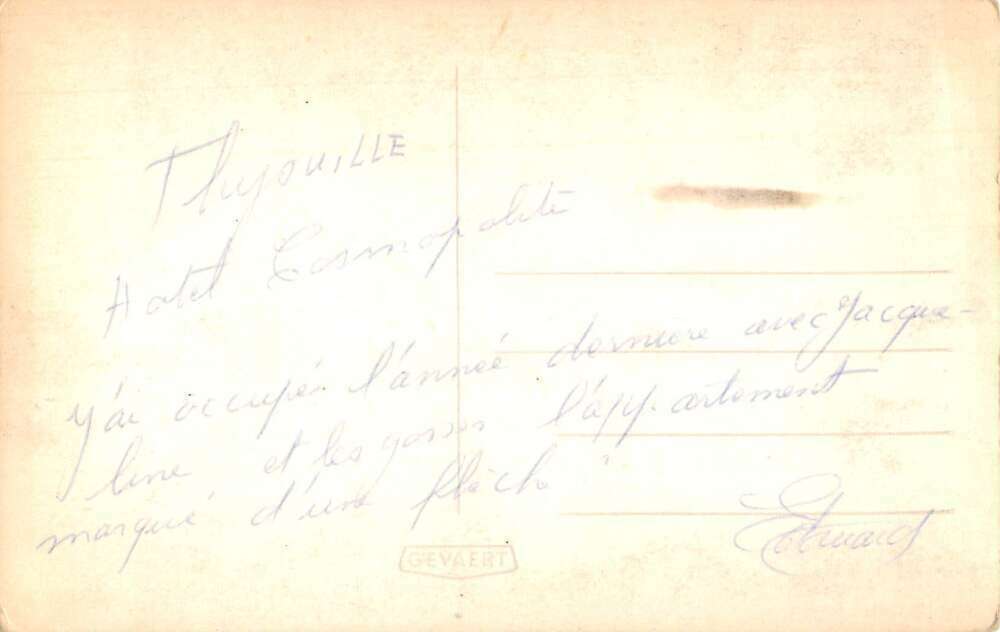 ThyouiLLE
Hotel Cosmopolite
j'ai occupé l'année dernière avec Jacque-
line et les gosses l'appartement
marqué d'une flèche
Edouard
GEVAERT